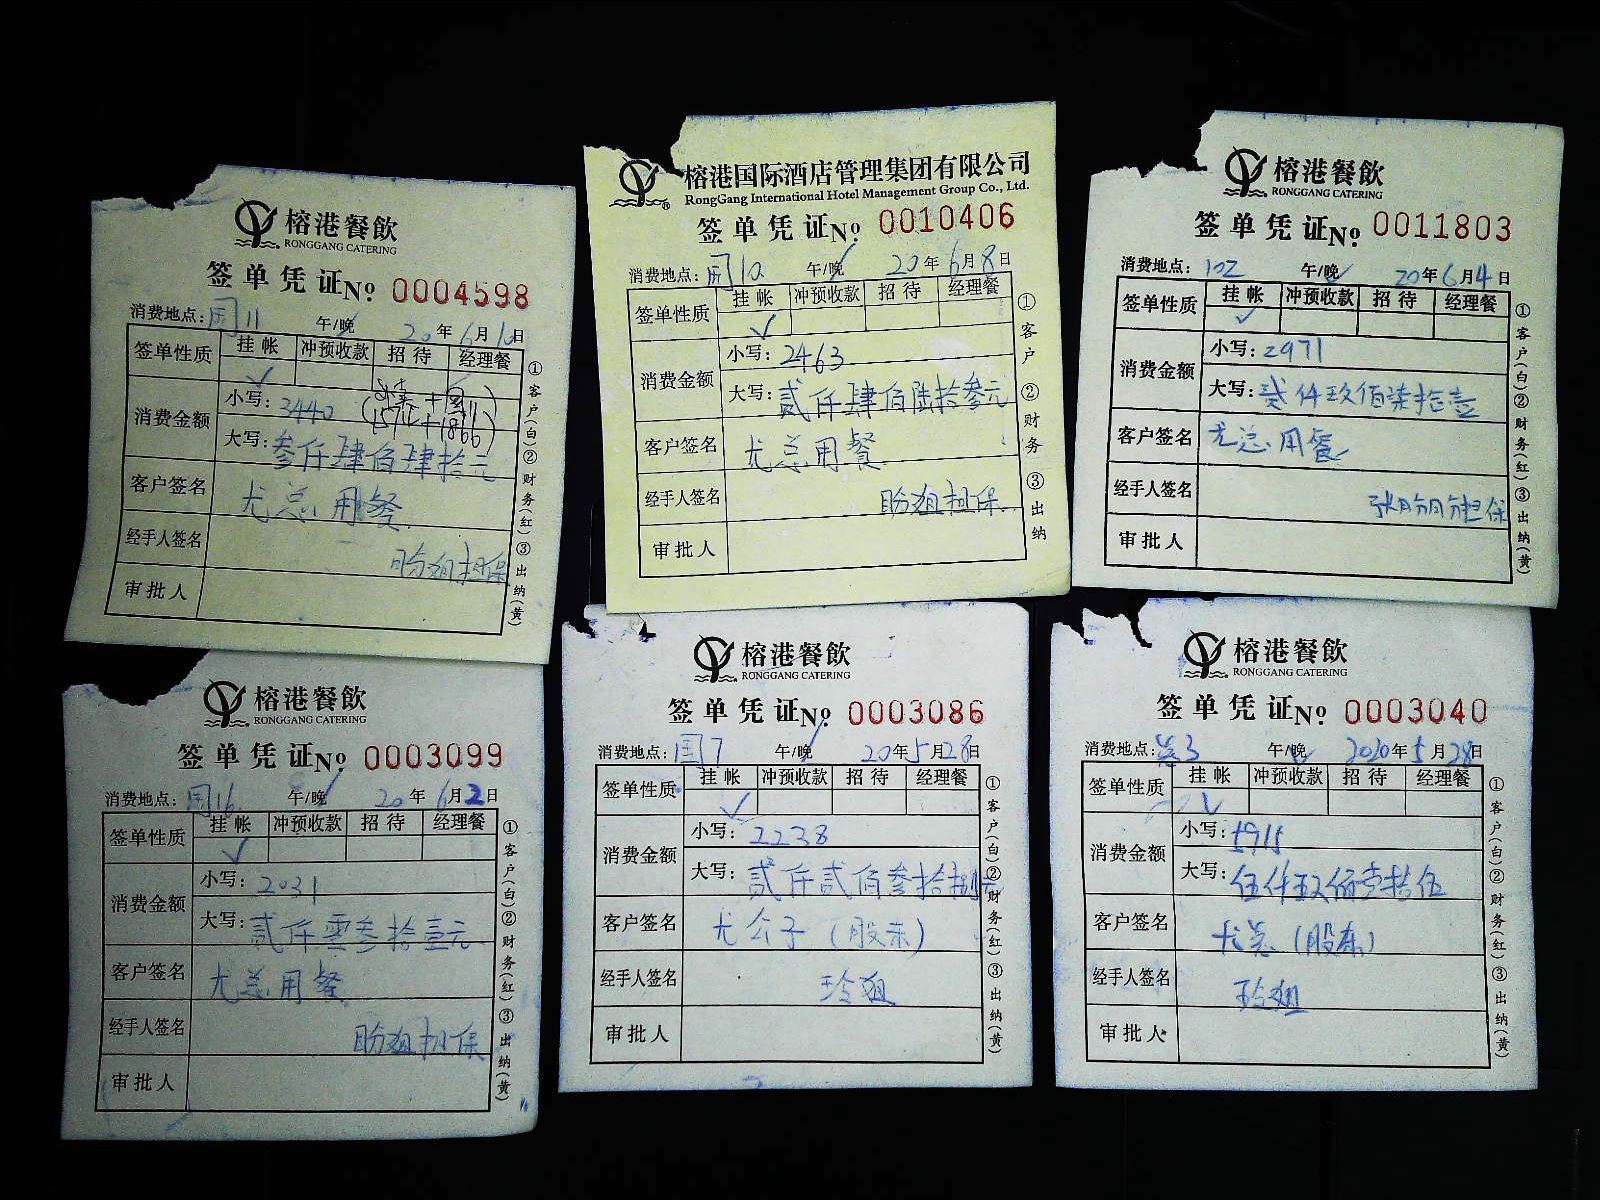 榕港餐飲
RONGGANG CATERING
签单凭证No. 0004598
消费地点: 国11 午/晚 20年6月10日
签单性质 挂帐 冲预收款 招待 经理餐
✓
消费金额 小写: 3440
(1574+1866)
大写: 参仟肆佰肆拾元
客户签名 尤总用餐
经手人签名 盼姐担保
审批人
①客户(白)②财务(红)③出纳(黄)
榕港国际酒店管理集团有限公司
RongGang International Hotel Management Group Co., Ltd.
签单凭证No. 0010406
消费地点: 国10 午/晚 20年6月8日
签单性质 挂帐 冲预收款 招待 经理餐
✓
消费金额 小写: 2463
大写: 贰仟肆佰陆拾参元
客户签名 尤总用餐
经手人签名 盼姐担保
审批人
①客户 ②财务 ③出纳
榕港餐飲
RONGGANG CATERING
签单凭证No. 0011803
消费地点: 102 午/晚 20年6月4日
签单性质 挂帐 冲预收款 招待 经理餐
✓
消费金额 小写: 2971
大写: 贰仟玖佰柒拾壹
客户签名 尤总用餐
经手人签名 担保
审批人
①客户(白)②财务(红)③出纳(黄)
榕港餐飲
RONGGANG CATERING
签单凭证No. 0003099
消费地点: 国16 午/晚 20年6月2日
签单性质 挂帐 冲预收款 招待 经理餐
✓
消费金额 小写: 2031
大写: 贰仟零参拾壹元
客户签名 尤总用餐
经手人签名 盼姐担保
审批人
①客户(白)②财务(红)③出纳(黄)
榕港餐飲
RONGGANG CATERING
签单凭证No. 0003086
消费地点: 国7 午/晚 20年5月28日
签单性质 挂帐 冲预收款 招待 经理餐
✓
消费金额 小写: 2238
大写: 贰仟贰佰参拾捌元
客户签名 尤公子(股东)
经手人签名 玲姐
审批人
①客户(白)②财务(红)③出纳(黄)
榕港餐飲
RONGGANG CATERING
签单凭证No. 0003040
消费地点: 午/晚 2020年5月28日
签单性质 挂帐 冲预收款 招待 经理餐
✓
消费金额 小写: 5915
大写: 伍仟玖佰壹拾伍
客户签名 尤总(股东)
经手人签名 玲姐
审批人
①客户(白)②财务(红)③出纳(黄)